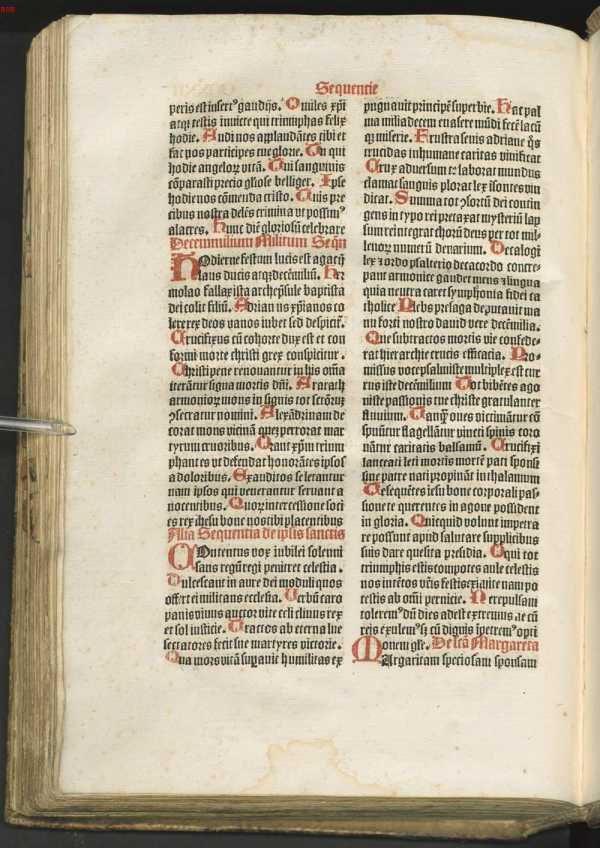 Sequentie
peris est insert9 gaudijs. O miles xp̄i
atq₃ testis inuicte qui triumphas felix
hodie. Audi nos applaudātes tibi et
fac nos participes tue glorie. Tu qui
hodie angelorꝝ vitā. Qui sanguinis
cōparasti precio gl̄iose belliger. Ipse
hodie nos cōmenda cristo. Tuis pre
cibus nostra
alacres. Hunc diē gloriosū celebrare
Decemmilium Militum Seq̄n
HOdierne festum lucis est agacꝫ
laus ducis atq₃ decēmiliū. Her
molao fallax ista archep̄sule baptista
dei colit filiū. Adrianus xp̄ianos co
lere rex deos vanos iubet sed despicit̄.
Crucifixus cū cohorte dux est et con
formi morte christi grex conspicitur.
Christi pene renouantur in his om̄ia
iterātur signa mortis dn̄i. Ararath
armonior mons in signis tot
ꝯsecratur nomini. Alexādrinam de
corat mons vicinā quez perrorat mar
tyrum cruoribus. Orant xp̄m trium
phantes vt defendat honorātes ipsos
a doloribus. Exauditos se letantur
nam ipsos qui venerantur seruant a
nocentibus. Quorꝫ intercessione soci
es rex ihesu bone nos tibi placentibus
Alia Sequentia de ipsis sanctis
COntentus vox iubilei solenni
sans regū regi penitret celestia.
Dulcescant in aure dei moduli quos
offert ei militans ecclesia. Verbū caro
panis viuus auctor vite celi cliuus rex
et sol iusticie. Tractos ab eterna lue
sectatores fecit sue martyres victorie.
Qua mors vitā superauit humilitas ex
pugnauit principē superbie. Hac pal
ma milia decem euasere mūdi fecē lacū
q₃ miserie. Frustra seuis adriane q̄s
crucidas inhumane caritas viuificat
Crux aduersum te laborat mundus
clamat sanguis plorat lex isontes vin
dicat. Summa tot ꝯsortū dei contin
gens in typo rei pretaxat mysteriū lap
sum reintegrat chorū deus per tot mil-
lenorꝫ numerū denarium. Decalogi
lex ꝫ ordo psalterio decacordo concre-
pant armonice gaudet mens ꝫ lingua
quia neutra caret symphonia fidei ca
tholice Plebs presaga deputauit ma
nu forti nostro dauid vere decēmilia.
Que subtractos mortis vie confede-
rat hierarchie crucis efficacia. Pro-
missus voce psalmiste multiplex est cur
rus iste decēmilium Tot bibētes ago
niste passionis tue christe gratulanter
fluuium. Tanq̄ oues victimātur cū
spuūtur flagellātur vincti spinis coro
nātur caritatis balsamū. Crucifixi
lanceati leti mortis mortē pati sponsi
sine patre nati propinant in thalamum
Te sequētes iesu bone corporali pas-
sione te querentes in agone possident
in gloria. Quicquid volunt impetra
re possunt apud salutare supplicibus
suis dare quesita presidia. O qui tot
triumphis estis compotes aule celestis
nos intētos vr̄is festis exiāite nam po
testis ab om̄i pernicie. Ne repulsam
tolerem9 dū dies adest extremus ae cū
reis exulem9 sꝫ cū dignis īpetrem9 opti
MOnem gl̄e. De scā Margareta
Argaritam speciosam sponsam